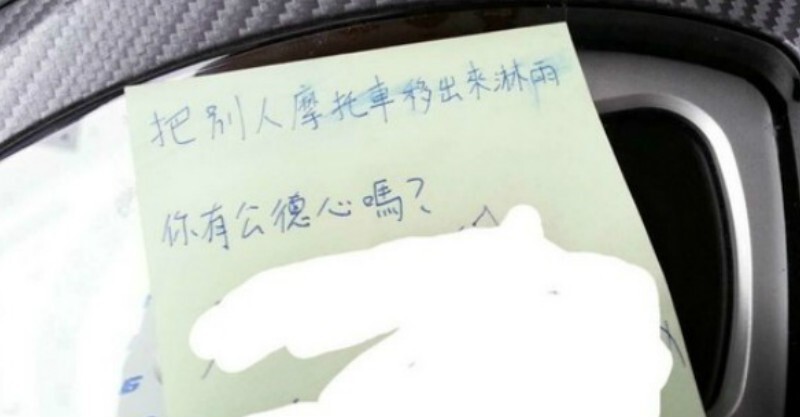 把別人摩托車移出來淋雨
你有公德心嗎？